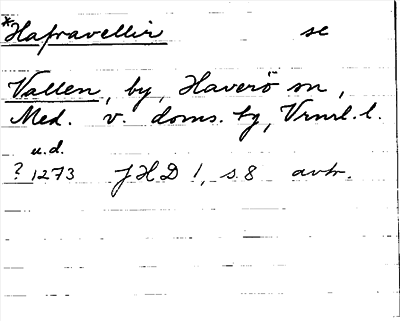 *Hafravellir se
Vallen, by, Haverö sn,
Med. v. doms. bg, Vrnrl. l.
u.d.
? 1273 JHD 1, s. 8 avtr.